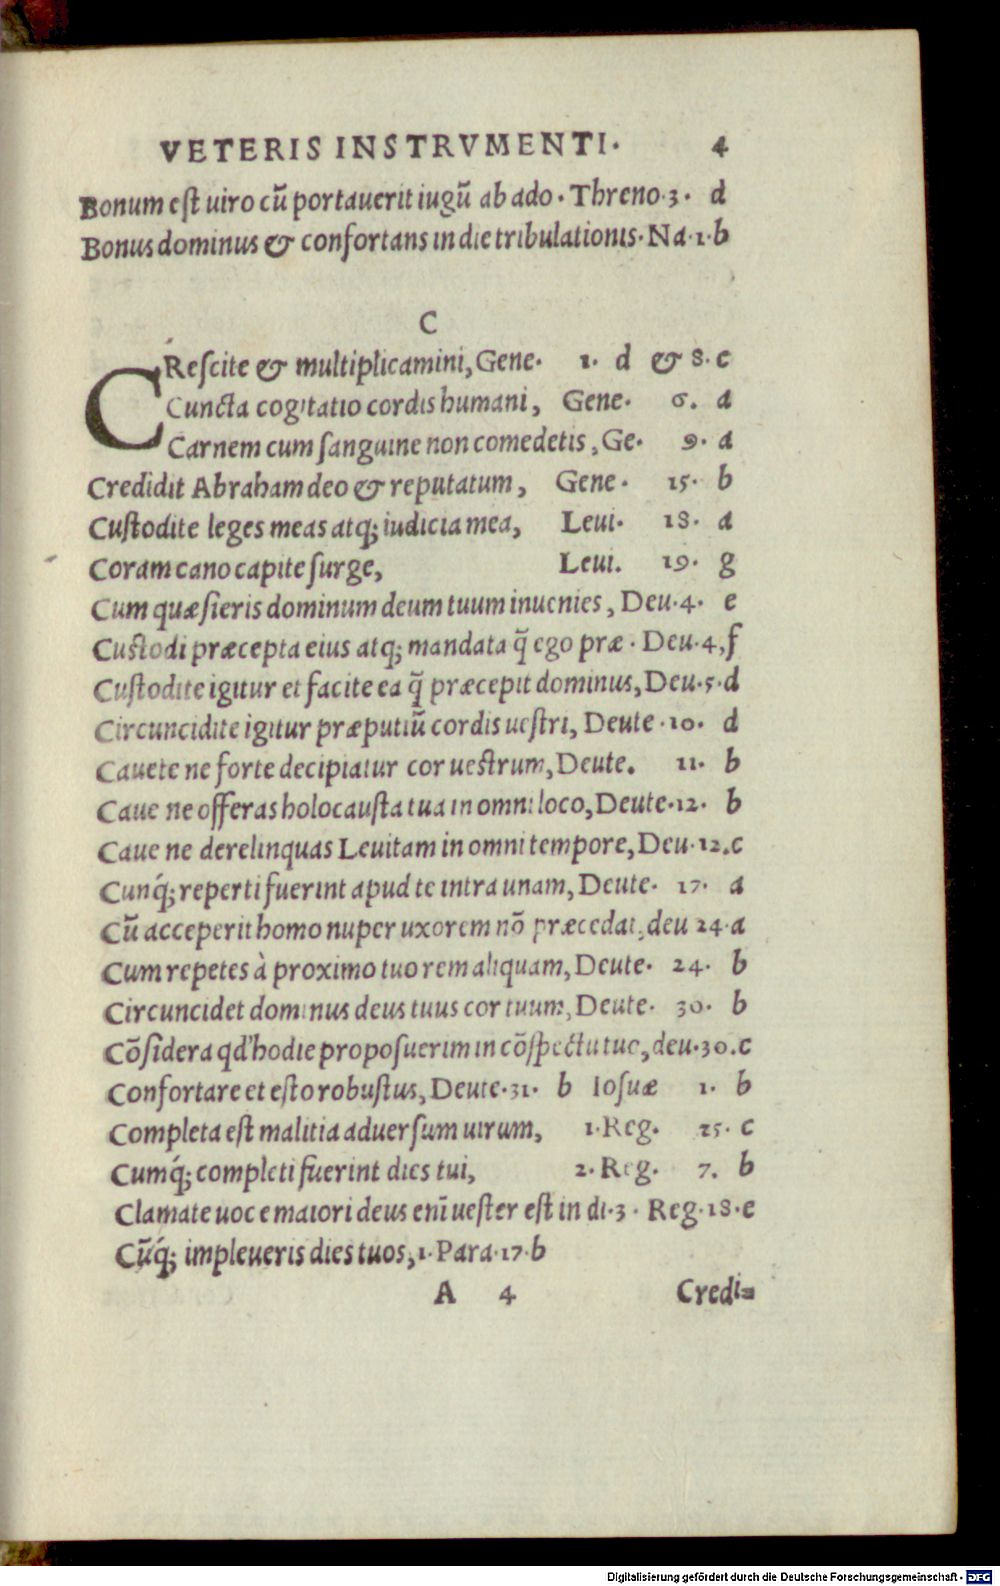 VETERIS INSTRVMENTI. 4
Bonum est uiro cū portauerit iugū ab ado. Threno.3. d
Bonus dominus & confortans in die tribulationis. Na.1.b
C
CRescite & multiplicamini, Gene. 1. d & 8. c
Cuncta cogitatio cordis humani, Gene. 6. a
Carnem cum sanguine non comedetis, Ge. 9. a
Credidit Abraham deo & reputatum, Gene. 15. b
Custodite leges meas atq; iudicia mea, Leui. 18. a
Coram cano capite surge, Leui. 19. g
Cum quæsieris dominum deum tuum inuenies, Deu.4. e
Custodi præcepta eius atq; mandata q̃ ego præ. Deu.4,f
Custodite igitur et facite ea q̃ præcepit dominus, Deu.5.d
Circuncidite igitur præputiū cordis uestri, Deute.10. d
Cauete ne forte decipiatur cor uestrum, Deute. 11. b
Caue ne offeras holocausta tua in omni loco, Deute.12. b
Caue ne derelinquas Leuitam in omni tempore, Deu.12.c
Cunq́; reperti fuerint apud te intra unam, Deute. 17. a
Cū acceperit homo nuper uxorem nō præcedat, deu 24.a
Cum repetes à proximo tuo rem aliquam, Deute. 24. b
Circuncidet dominus deus tuus cor tuum, Deute. 30. b
Cōsidera qd' hodie proposuerim in cōspectu tuo, deu.30.c
Confortare et esto robustus, Deute.31. b Iosuæ 1. b
Completa est malitia aduersum uirum, 1.Reg. 25. c
Cumq́; completi fuerint dies tui, 2. Reg. 7. b
Clamate uoce maiori deus enī uester est in di.3. Reg.18.e
Cūq́; impleueris dies tuos, 1. Para.17.b
A 4 Credi=
Digitalisierung gefördert durch die Deutsche Forschungsgemeinschaft - DFG